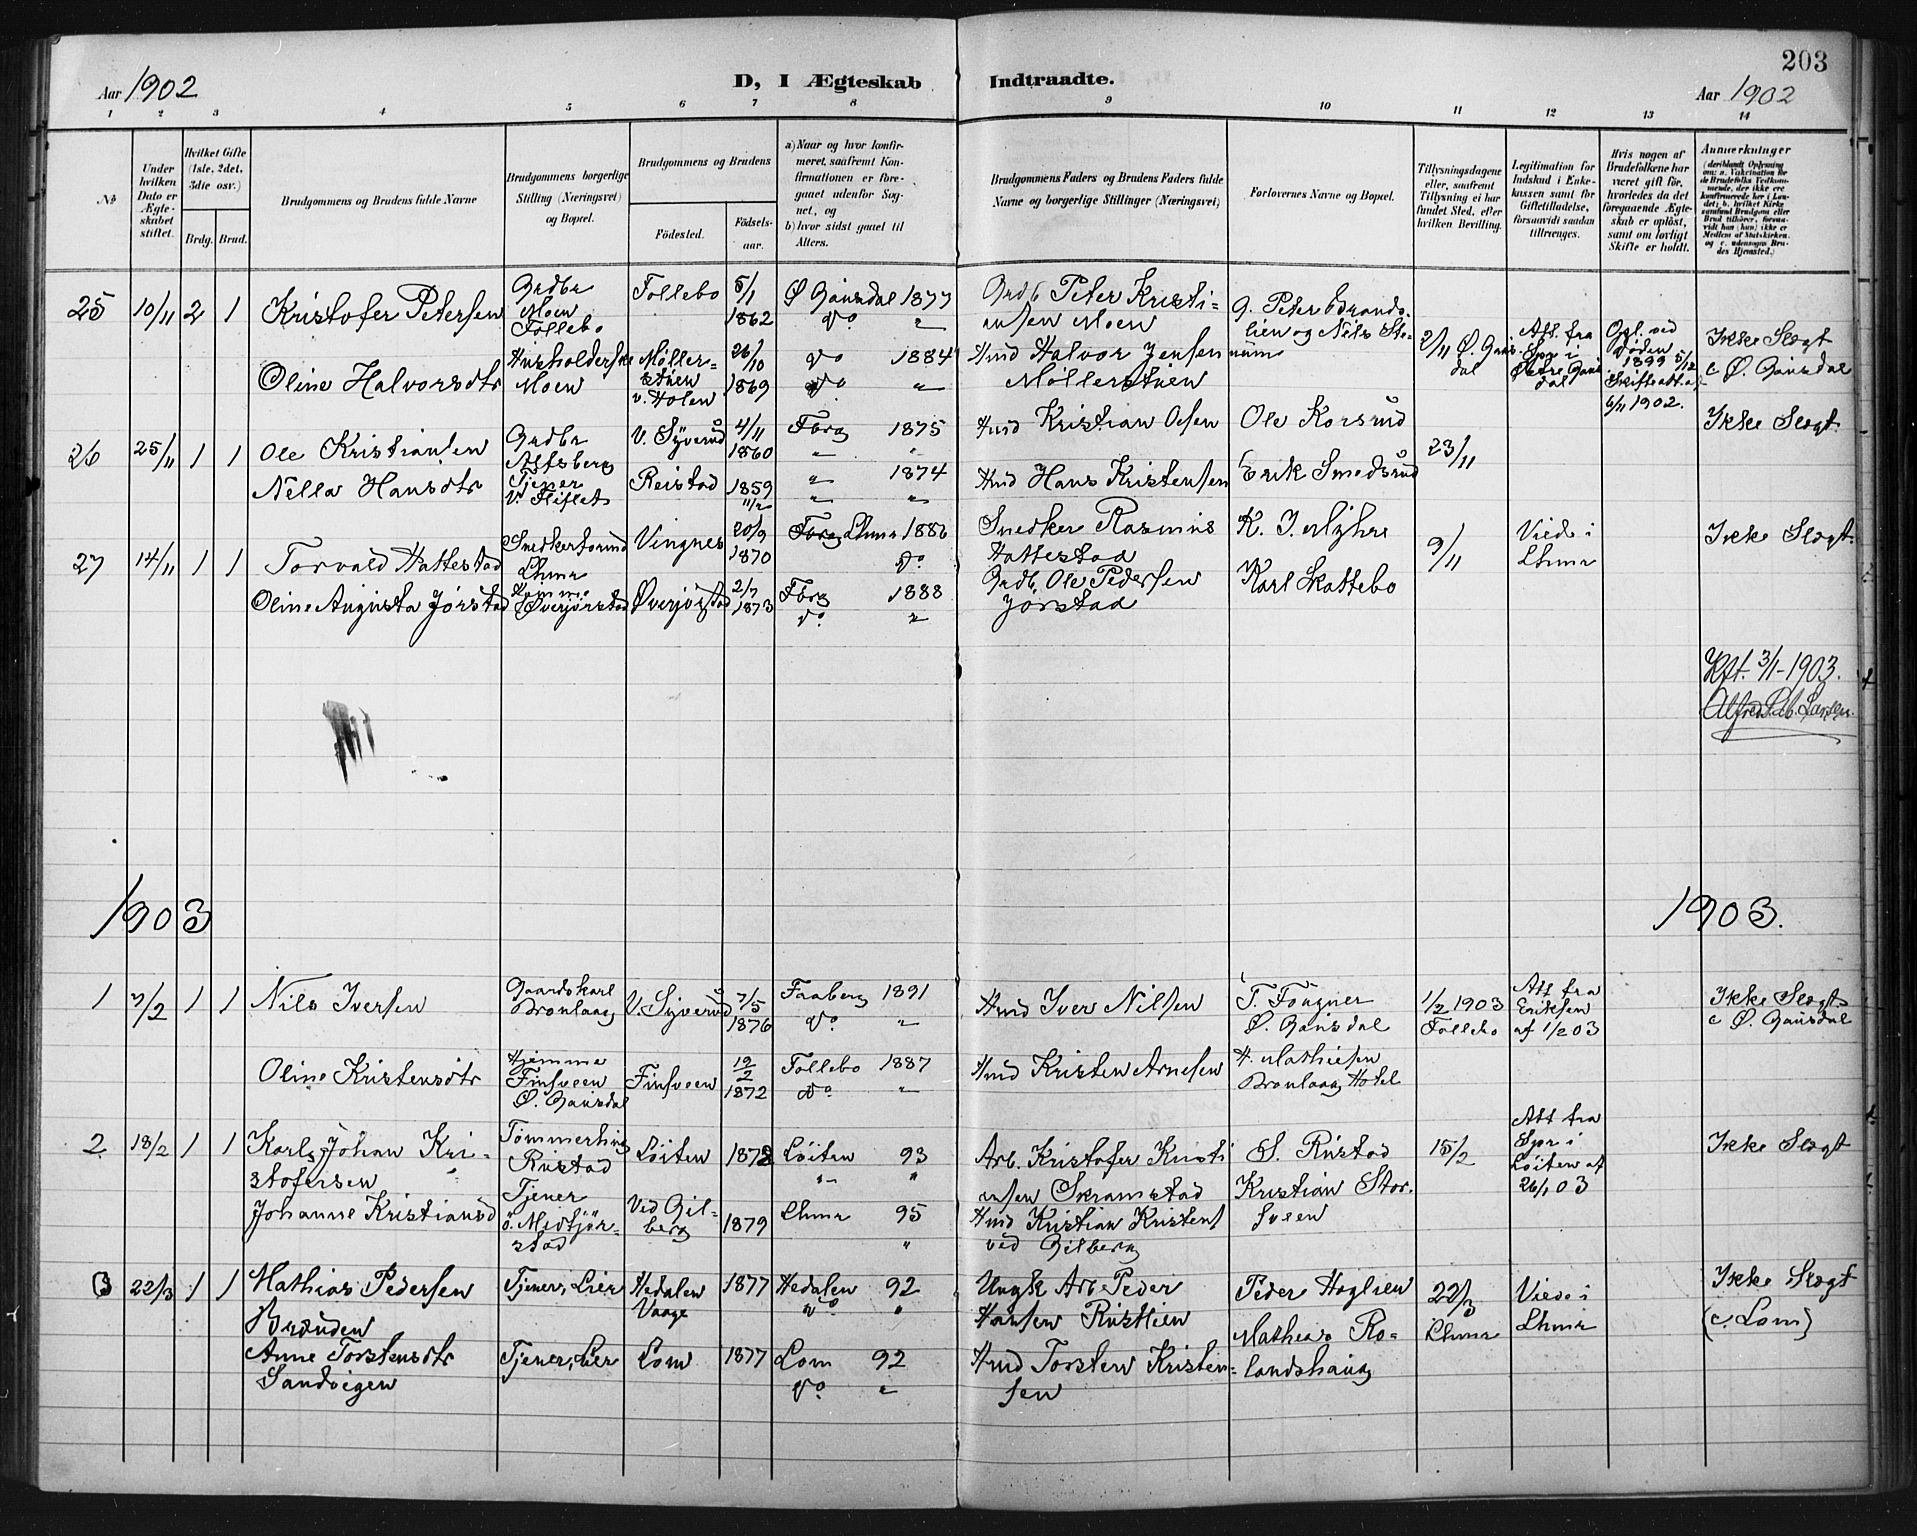 203
Aar 1902
D, I Ægteskab Indtraadte.
Aar 1902
1 2 3 4 5 6 7 8 9 10 11 12 13 14
№
Under hvilken Dato er Ægteskabet stiftet.
Hvilket Gifte (1ste, 2det, 3die osv.)
Brdg. Brud.
Brudgommens og Brudens fulde Navne
Brudgommens borgerlige Stilling (Næringsvei) og Bopæl.
Brudgommens og Brudens
Fødested.
Fødselsaar.
a) Naar og hvor konfirmeret, saafremt Konfirmationen er foregaaet udenfor Sognet, og
b) hvor sidst gaaet til Alters.
Brudgommens Faders og Brudens Faders fulde Navne og borgerlige Stillinger (Næringsvei)
Forlovernes Navne og Bopæl.
Tillysningsdagene eller, saafremt Tillysning ei har fundet Sted, efter hvilken Bevilling.
Legitimation for Indskud i Enkekassen samt for Giftetilladelse, forsaavidt saadan tiltrænges.
Hvis nogen af Brudefolkene har været gift før, hvorledes da det foregaaende Ægteskab er opløst, samt om lovligt Skifte er holdt.
Anmerkninger
25 10/11 2 1 Kristofer Petersen
Grdbr Moen Follebo
Follebo 5/1 1862
Ø Gausdal 1877
do "
Grdb Peter Kristiansen Moen
2/11 Ø. Gausdal
Att. fra Spr i Østre Gausdal
Ikke Slægt
c Ø. Gausdal
Oline Halvorsdtr
Husholderske Moen
Møllerstuen v. Holen
26/10 1869
do 1884
do "
Hmd Halvor Jensen
Møllerstuen
26 25/11 1 1 Ole Kristiansen
Grdbr
V. Syverud 4/11 1860
Fbrg 1875
" "
Hmd Kristian Olsen
Ole Korsrud
23/11
Ikke Slægt.
Nilla Hansdtr
Tjener
Reistad 1859
" 1874
" "
Hmd Hans Kristensen
Erik Smedsrud
27 14/11 1 1 Torvald Hattestad
Lhmr
Vingnes 20/9 1870
Lhmr 1886
do
Snedker Rasmus Hattestad
9/11
Viede i Lhmr
Ikke Slægt.
Oline Augusta Jørstad
Øverjørstad
Øverjørstad 2/7 1873
Fbrg 1888
do "
Grdb. Ole Pedersen Jørstad
Karl Skattebo
Kft. 3/1-1903.
1903
1903.
1 7/2 1 1 Nils Iversen
Gaardskarl
V. Syverud 7/5 1876
Faaberg 1891
do "
Hmd Iver Nilsen
T. Fougner
Ø. Gausdal
1/2 1903
Follebo
Att fra Eriksen af 1/2 03
Ikke Slægt
c Ø. Gausdal
Oline Kristensdtr
Hjemme Finsveen Ø. Gausdal
Finsveen 12/2 1872
Follebo 1887
do "
Hmd Kristen Arnesen
H. Mathiesen
Hotel
2 18/2 1 1 Karl Johan Kristofersen
Rustad
Løiten 1872
Løiten 93
" "
Arb. Kristofer Kristiansen Skramstad
S. Rustad
15/2
Att fra Spr i Løiten af 26/1 03
Ikke Slægt
Johanne Kristiansd
Tjener
Ved Gilberg 1879
Lhmr 95
"
Hmd Kristian Kristens
ved Gilberg
Kristian Storsveen
3 22/3 1 1 Mathias Pedersen
Tjener, Lier
Hedalen Vaage 1877
Hedalen 92
do "
Ungk Arb Peder Hansen
22/3
Lhmr
Viede i Lhmr
Ikke Slægt
(c. Lom)
Anne Torstensdtr Sandvigen
Tjener, Lier
Lom 1877
Lom 92
do "
Hmd Torsten Kristensen
Mathias Rolandshaug